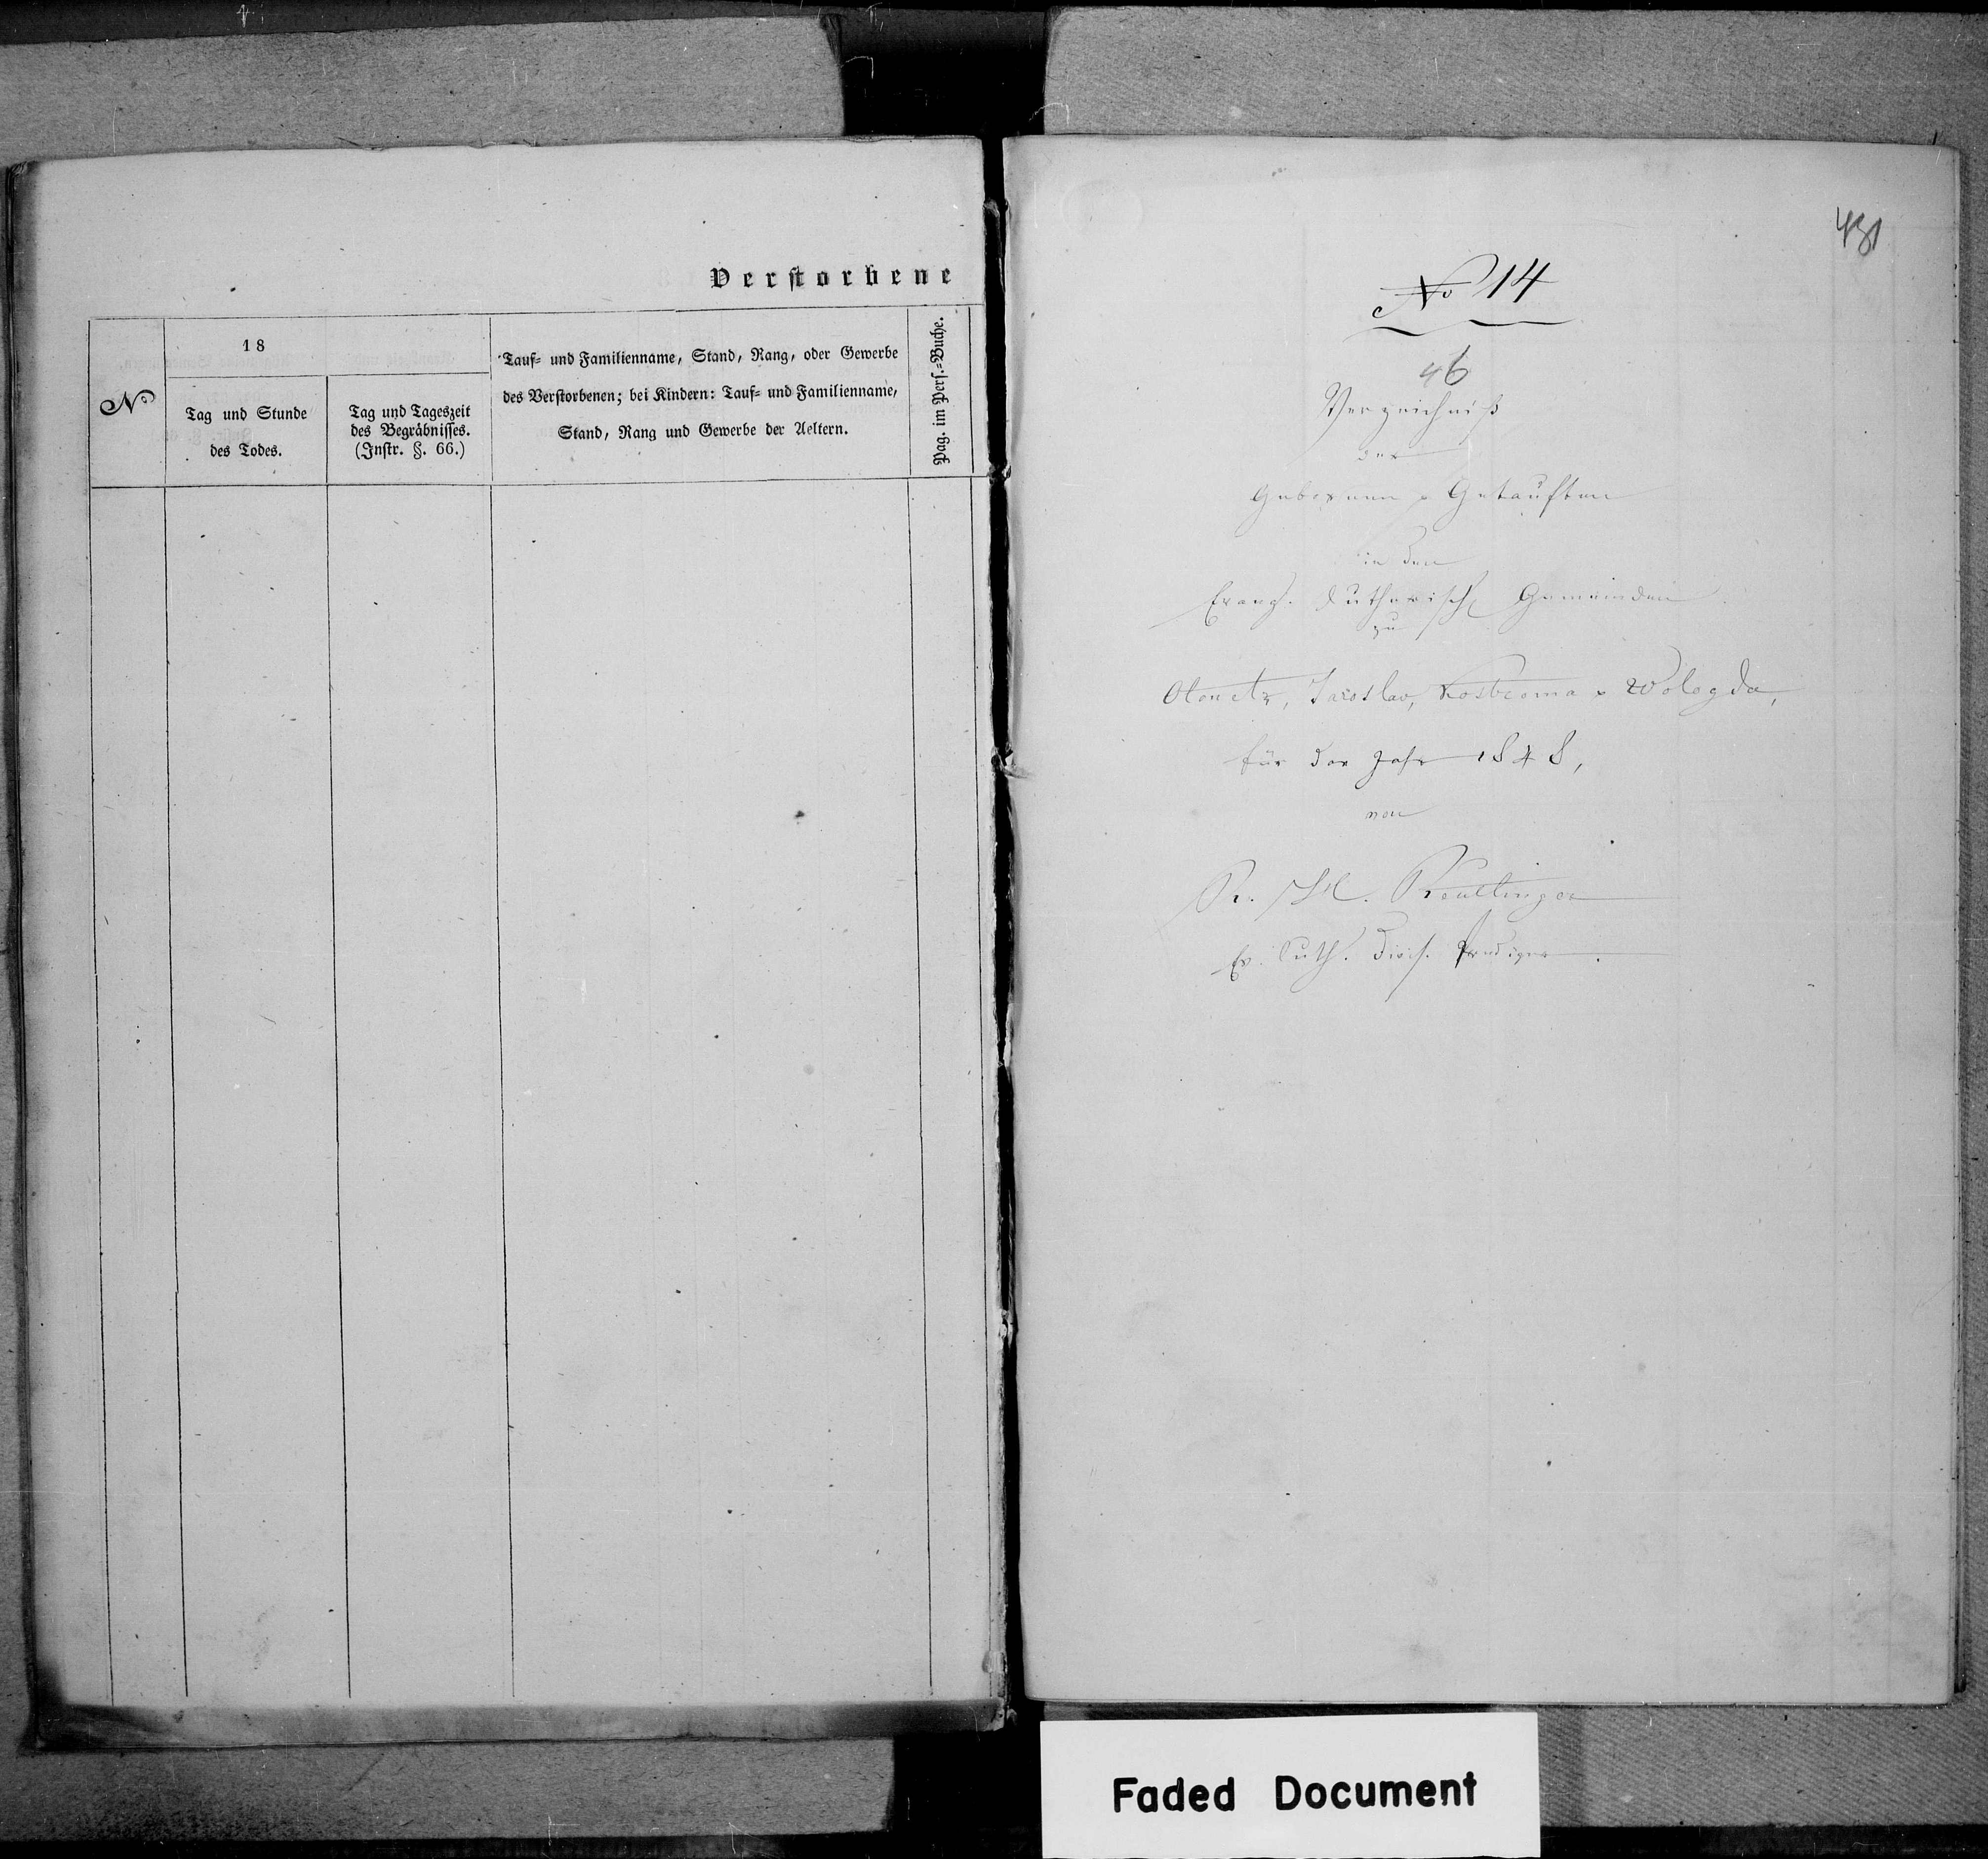 Verstorbene
No
18
Tag und Stunde
des Todes.
Tag und Tageszeit
des Begräbnisses.
(Instr. §. 66.)
Tauf- und Familienname, Stand, Rang, oder Gewerbe
des Verstorbenen; bei Kindern: Tauf- und Familienname,
Stand, Rang und Gewerbe der Aeltern.
Pag. im Pers.-Buche.
431
No 14
46
Verzeichniß
der
Gebornen & Getauften
in den
Evang. Lutherisch Gemeinden
zu
Olonetz, Jaroslav, Kostroma & Wologda,
für das Jahr 1848,
von
Reultinger
Ev. Luth. Divis. Prediger.
Faded Document